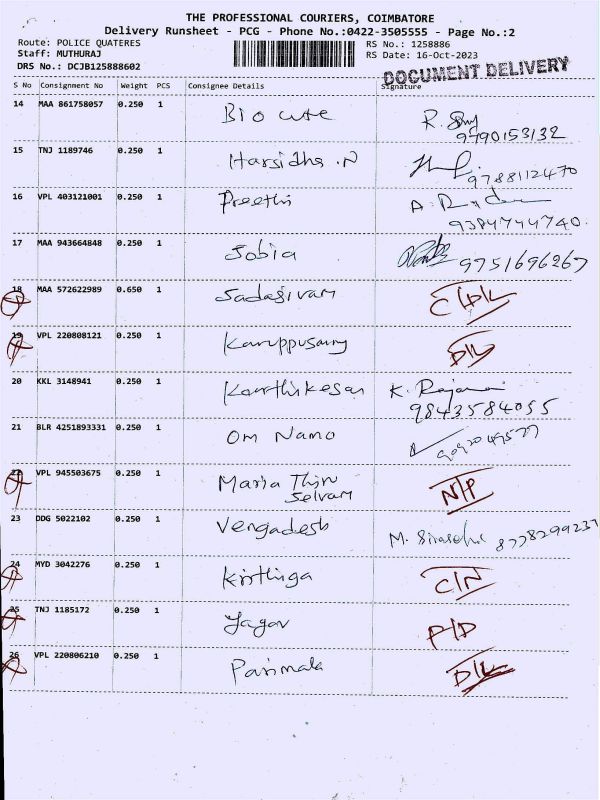 THE PROFESSIONAL COURIERS, COIMBATORE
Delivery Runsheet - PCG - Phone No.:0422-3505555 - Page No.:2
Route: POLICE QUATERES RS No.: 1258886
Staff: MUTHURAJ RS Date: 16-Oct-2023
DRS No.: DCJB125888602
DOCUMENT DELIVERY
S No Consignment No Weight PCS Consignee Details Signature
14 MAA 861758057 0.250 1 Bio cute R.
9790153132
15 TNJ 1189746 0.250 1 Harsidha .N
9788112470
16 VPL 403121001 0.250 1 Preethi A.
9384744740.
17 MAA 943664848 0.250 1 Jobia 9751696267
18 MAA 572622989 0.650 1 Sadasivam
19 VPL 220808121 0.250 1 Karuppusamy D/L
20 KKL 3148941 0.250 1 Karthikesan K.
9843584055
21 BLR 4251893331 0.250 1 Om Namo
22 VPL 945503675 0.250 1 Maria Thiru N/P
Selvam
23 DDG 5022102 0.250 1 Vengadesh M. 8778299237
24 MYD 3042276 0.250 1 Kirthiga C/N
25 TNJ 1185172 0.250 1 Yagav P/D
26 VPL 220806210 0.250 1 Parimala D/L